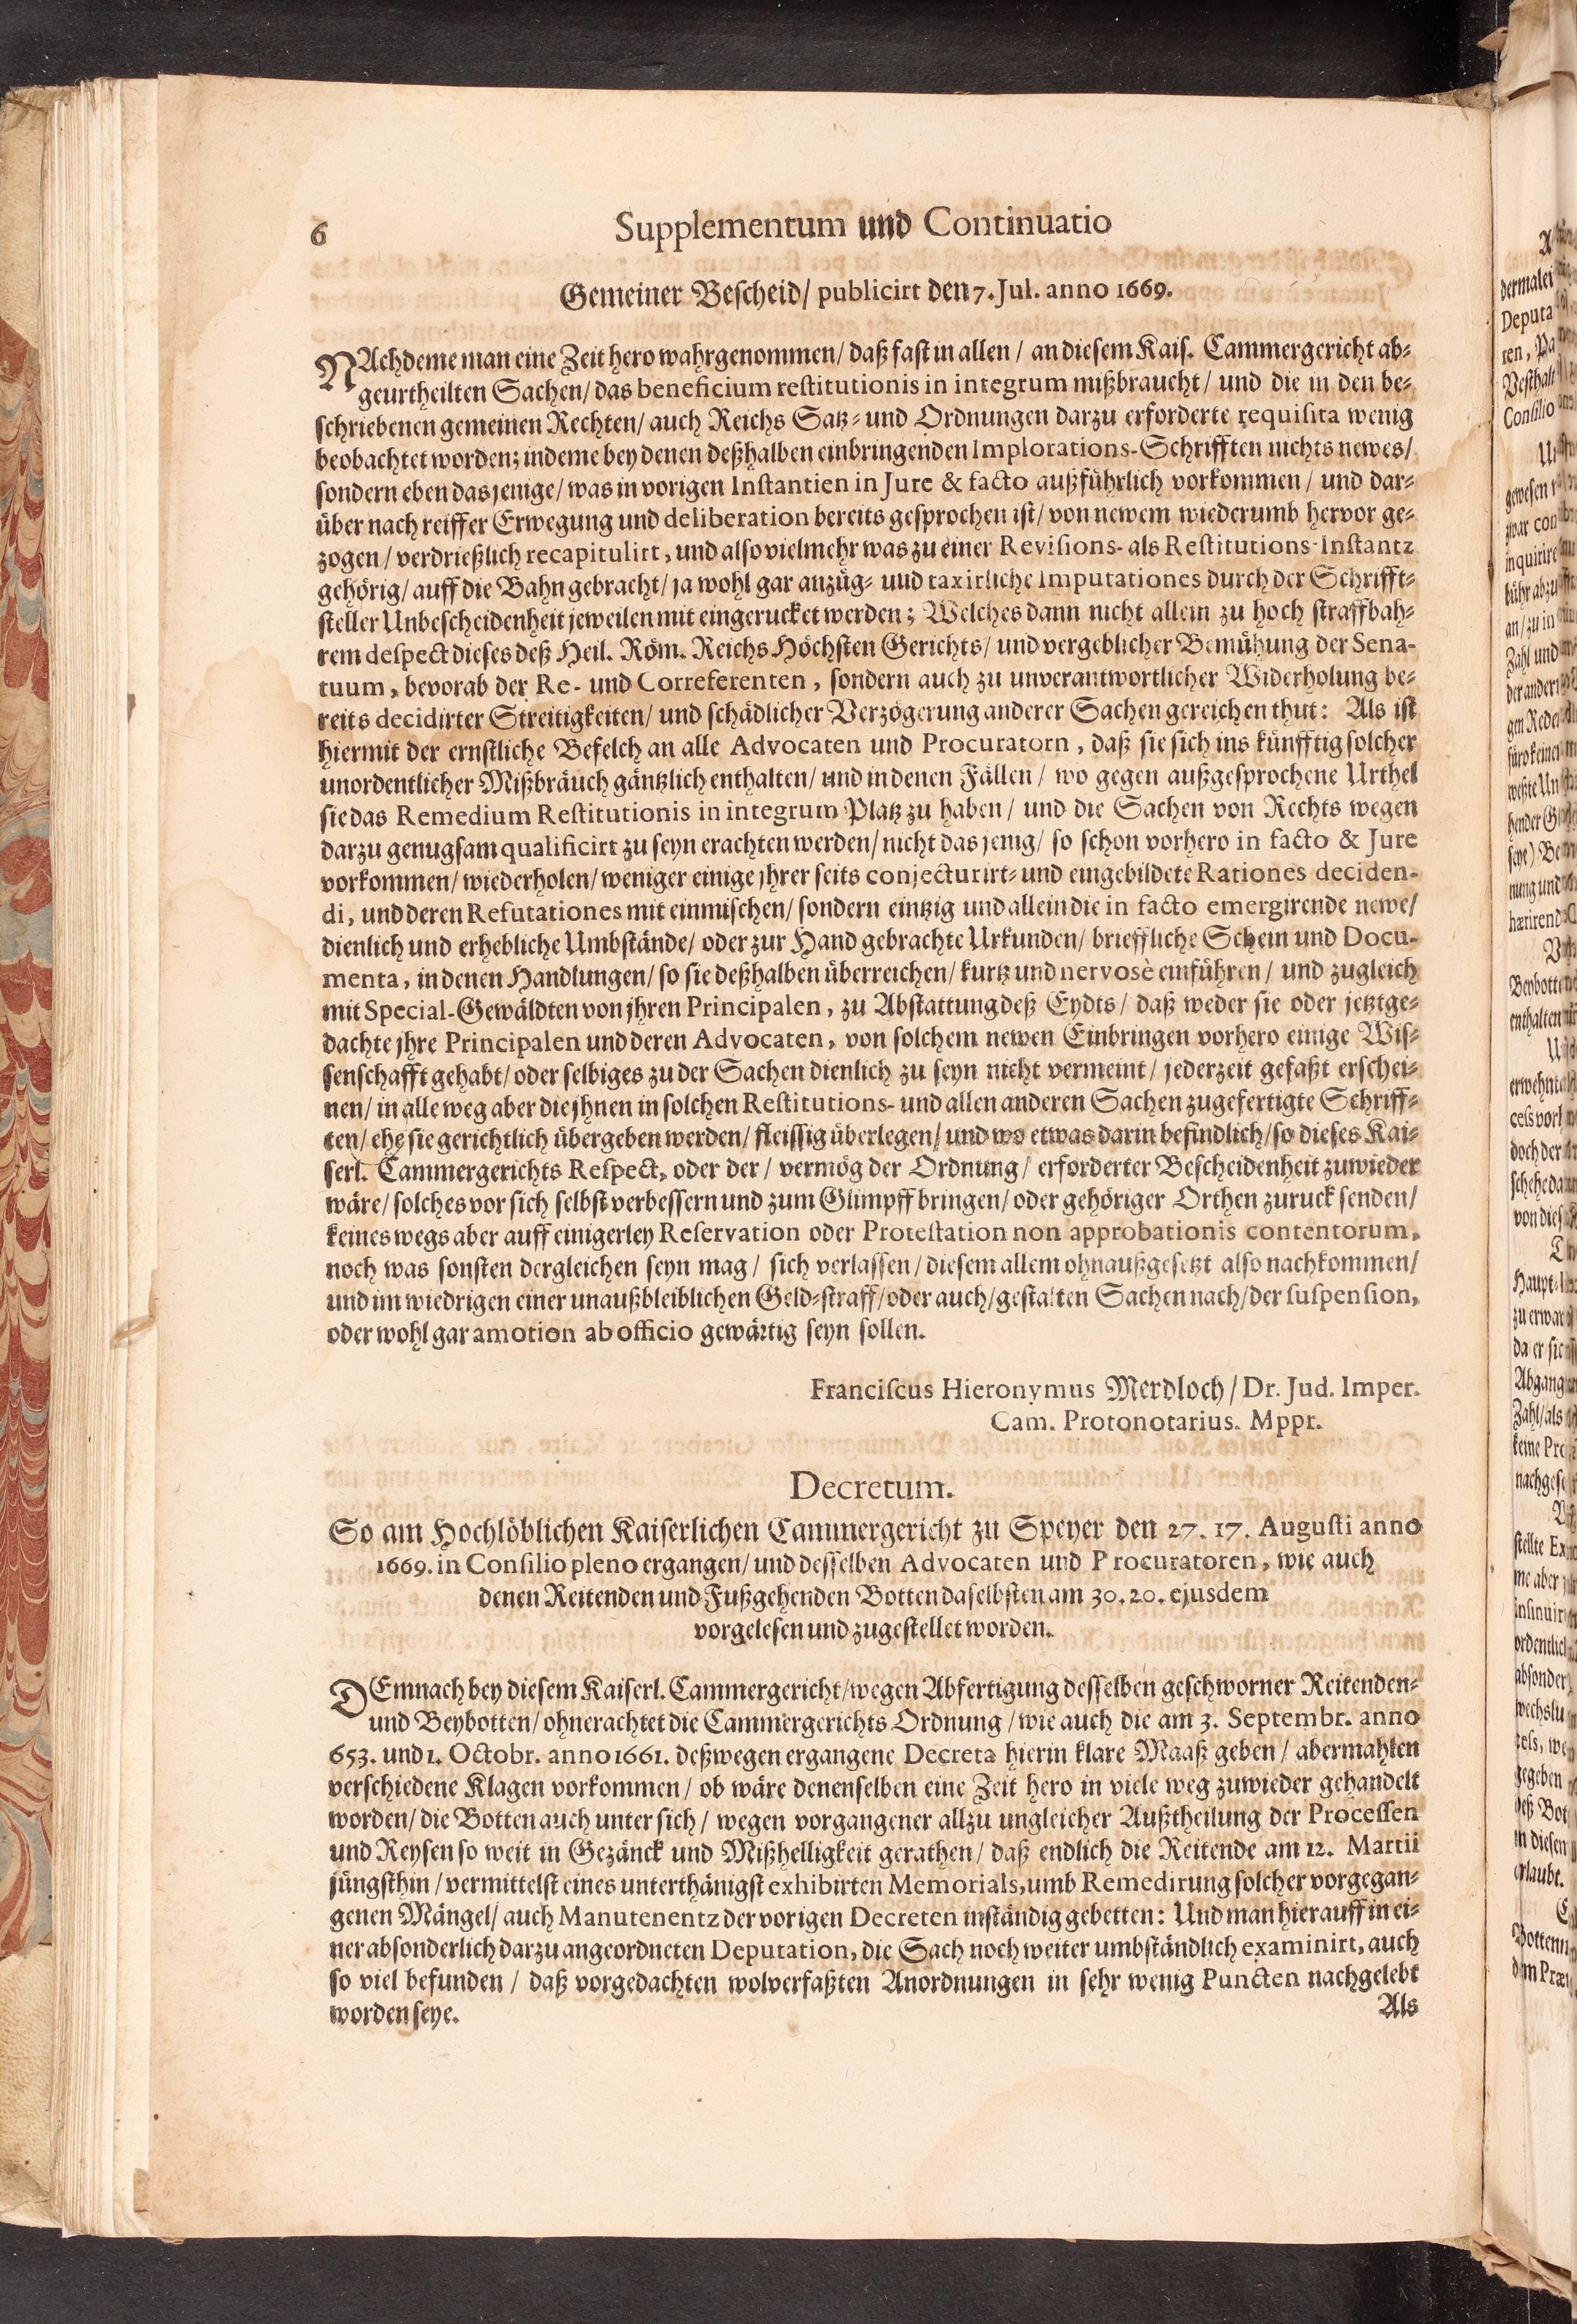 6
Supplementum und Continuatio
Gemeiner Bescheid/ publicirt den 7. Jul. anno 1669.
NAchdeme man eine Zeit hero wahrgenommen/ daß fast in allen / an diesem Kais. Cammergericht ab-
geurtheilten Sachen/ das beneficium restitutionis in integrum mißbraucht/ und die in den be-
schriebenen gemeinen Rechten/ auch Reichs Satz- und Ordnungen darzu erforderte requisita wenig
beobachtet worden; indeme bey denen deßhalben einbringenden Implorations-Schrifften nichts newes/
sondern eben das jenige/ was in vorigen Instantien in Jure & facto außführlich vorkommen / und dar-
über nach reiffer Erwegung und deliberation bereits gesprochen ist/ von newem wiederumb hervor ge-
zogen / verdrießlich recapitulirt, und also vielmehr was zu einer Revisions- als Restitutions-Instantz
gehörig/ auff die Bahn gebracht/ ja wohl gar anzüg- und taxirliche Imputationes durch der Schrifft-
steller Unbescheidenheit jeweilen mit eingerucket werden; Welches dann nicht allein zu hoch straffbah-
rem despect dieses deß Heil. Röm. Reichs Höchsten Gerichts/ und vergeblicher Bemühung der Sena-
tuum, bevorab der Re- und Correferenten, sondern auch zu unverantwortlicher Widerholung be-
reits decidirter Streitigkeiten/ und schädlicher Verzögerung anderer Sachen gereichen thut: Als ist
hiermit der ernstliche Befelch an alle Advocaten und Procuratorn, daß sie sich ins künfftig solcher
unordentlicher Mißbräuch gäntzlich enthalten/ und in denen Fällen / wo gegen außgesprochene Urthel
sie das Remedium Restitutionis in integrum Platz zu haben / und die Sachen von Rechts wegen
darzu genugsam qualificirt zu seyn erachten werden/ nicht das jenig/ so schon vorhero in facto & Jure
vorkommen/ wiederholen/ weniger einige jhrer seits conjecturirt- und eingebildete Rationes deciden-
di, und deren Refutationes mit einmischen/ sondern eintzig und allein die in facto emergirende newe/
dienlich und erhebliche Umbstände/ oder zur Hand gebrachte Urkunden/ brieffliche Schein und Docu-
menta, in denen Handlungen/ so sie deßhalben überreichen/ kurtz und nervosè einführen / und zugleich
mit Special-Gewäldten von jhren Principalen, zu Abstattung deß Eydts/ daß weder sie oder jetztge-
dachte jhre Principalen und deren Advocaten, von solchem newen Einbringen vorhero einige Wis-
senschafft gehabt/ oder selbiges zu der Sachen dienlich zu seyn nicht vermeint / jederzeit gefaßt erschei-
nen/ in alle weg aber die jhnen in solchen Restitutions- und allen anderen Sachen zugefertigte Schriff-
ten/ ehe sie gerichtlich übergeben werden/ fleissig überlegen/ und wo etwas darin befindlich/ so dieses Kai-
serl. Cammergerichts Respect, oder der/ vermög der Ordnung/ erforderter Bescheidenheit zuwieder
wäre/ solches vor sich selbst verbessern und zum Glimpff bringen/ oder gehöriger Orthen zuruck senden/
keines wegs aber auff einigerley Reservation oder Protestation non approbationis contentorum,
noch was sonsten dergleichen seyn mag/ sich verlassen / diesem allem ohnaußgesetzt also nachkommen/
und im wiedrigen einer unaußbleiblichen Geld-straff/ oder auch/ gestalten Sachen nach/ der suspension,
oder wohl gar amotion ab officio gewärtig seyn sollen.
Franciscus Hieronymus Merdloch/ Dr. Jud. Imper.
Cam. Protonotarius. Mppr.
Decretum.
So am Hochlöblichen Kaiserlichen Cammergericht zu Speyer den 27. 17. Augusti anno
1669. in Consilio pleno ergangen/ und desselben Advocaten und Procuratoren, wie auch
denen Reitenden und Fußgehenden Botten daselbsten am 30. 20. ejusdem
vorgelesen und zugestellet worden.
DEmnach bey diesem Kaiserl. Cammergericht/ wegen Abfertigung desselben geschworner Reitenden-
und Beybotten/ ohnerachtet die Cammergerichts Ordnung / wie auch die am 3. Septembr. anno
653. und 1. Octobr. anno 1661. deßwegen ergangene Decreta hierin klare Maaß geben / abermahlen
verschiedene Klagen vorkommen / ob wäre denenselben eine Zeit hero in viele weg zuwieder gehandelt
worden/ die Botten auch unter sich / wegen vorgangener allzu ungleicher Außtheilung der Processen
und Reysen so weit in Gezänck und Mißhelligkeit gerathen/ daß endlich die Reitende am 12. Martii
jüngsthin / vermittelst eines unterthänigst exhibirten Memorials, umb Remedirung solcher vorgegan-
genen Mängel/ auch Manutenentz der vorigen Decreten inständig gebetten: Und man hierauff in ei-
ner absonderlich darzu angeordneten Deputation, die Sach noch weiter umbständlich examinirt, auch
so viel befunden / daß vorgedachten wolverfaßten Anordnungen in sehr wenig Puncten nachgelebt
worden seye.
Als